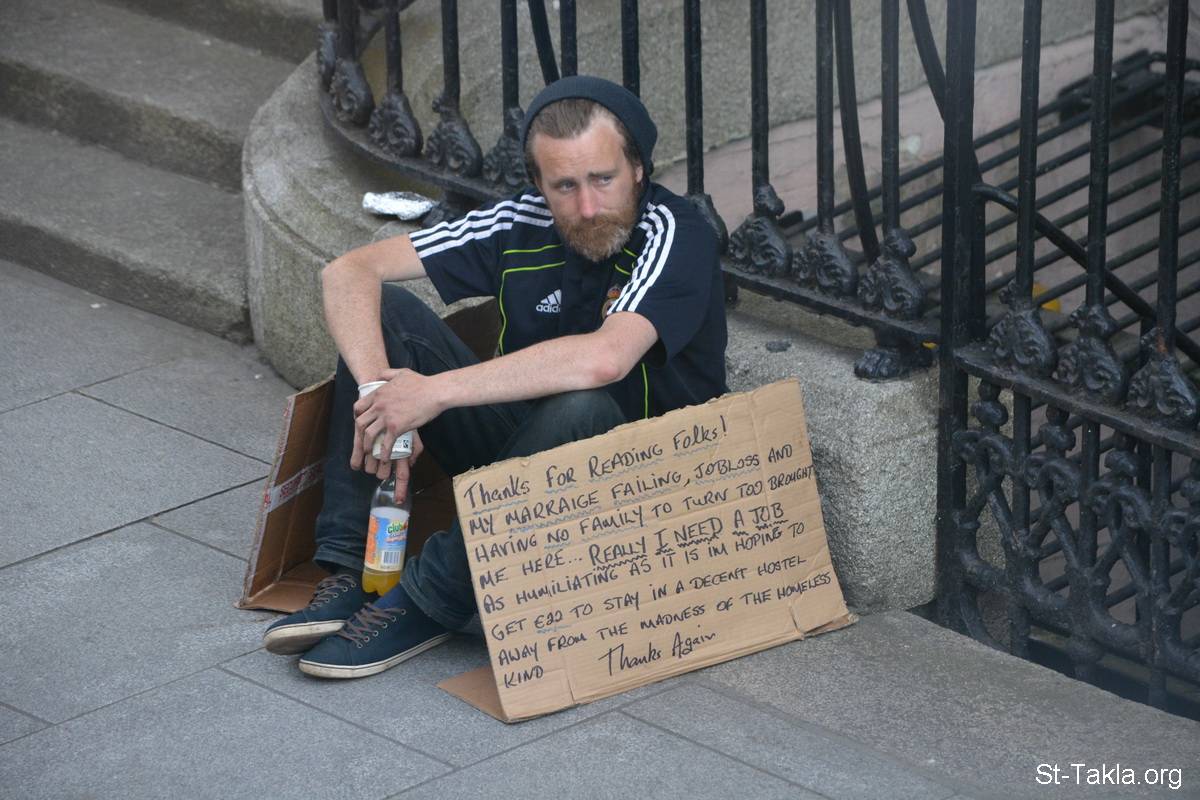 adidas
Club
Thanks FOR READING FOLKS!
MY MARRAIGE FAILING, JOBLOSS AND
HAVING NO FAMILY TO TURN TOO BROUGHT
ME HERE... REALLY I NEED A JOB
AS HUMILIATING AS IT IS IM HOPING TO
GET €22 TO STAY IN A DECENT HOSTEL
AWAY FROM THE MADNESS OF THE HOMELESS
KIND
Thanks Again
St-Takla.org